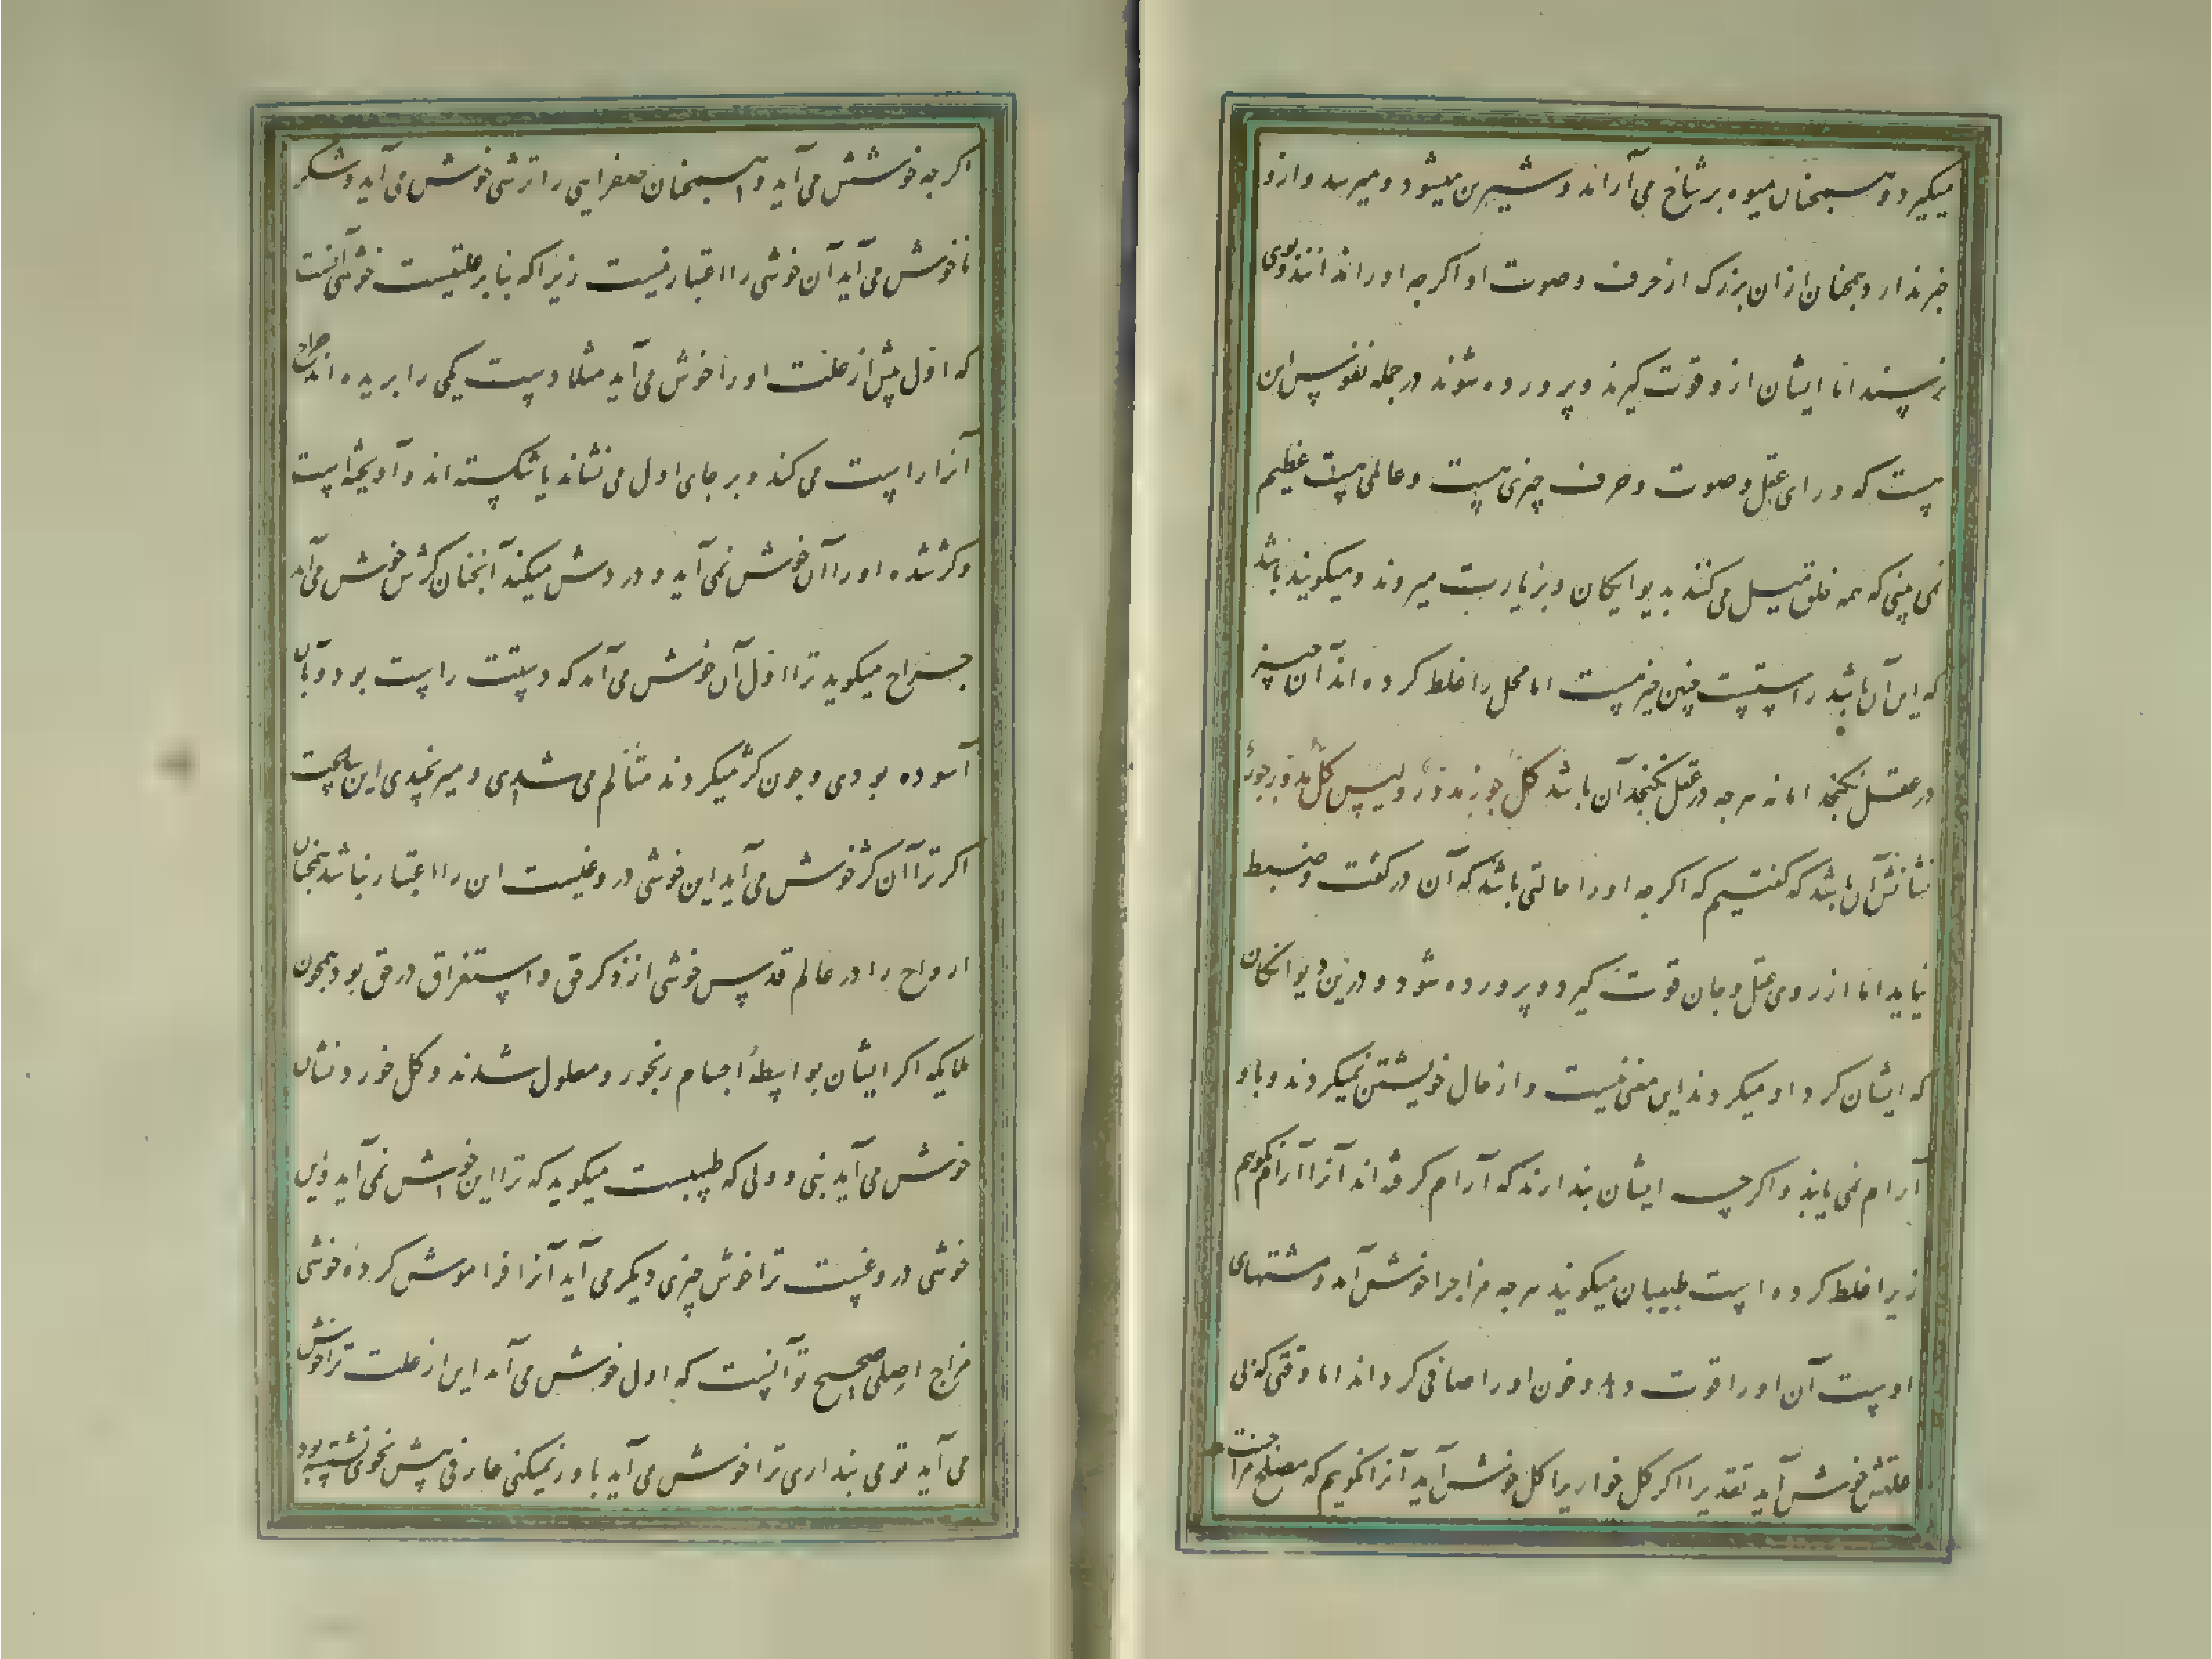 میکیرد و همچنان میوه بر شاخ می آراند و شیرین میشود و میرسد و ازو
خبر ندارد همچنان ازان بزرک از حرف و صوت او اکرجه او را ندانند و بوی
نرسند اما ایشان ازو قوت کیرند و پرورده شوند در جمله نفوس این
هست که ورای عقل و صوت و حرف چیزی هست و عالمی هست عظیم
نمی بینی که همه خلق میل می کنند به دیوانکان و بزیارت میروند و میکویند باشد
که این آن باشد راستست چنین چیز هست اما محل را غلط کرده اند آن چیز
در عقل نکنجد اما نه هرجه در عقل نکنجد آن باشد کل جوز مدور و لیس کل مدور جوز
نشانش آن باشد که کفتیم که اکرجه او را حالتی باشد که آن در کفت و ضبط
نیاید اما از روی عقل و جان قوت کیرد و پرورده شود و درین دیوانکان
که ایشان کرد او میکردند این معنی نیست و از حال خویشتن نمیکردند و باو
آرام نمی یابند و اکرچه ایشان پندارند که آرام کرفته اند آنرا آرام نکویم
زیرا غلط کرده است طبیبان میکویند هرجه مزاج را خوش آمد و مشتهای
اوست آن او را قوت دهد و خون او را صافی کرداند اما وقتی که بی
علتش خوش آید تقدیرا اکر کل خوار یرا کل خوش آید آنرا نکویم که مصلح مزاجست
اکرجه خوشش می آید و همچنان صفرایی را ترشی خوش می آید و شکر
ناخوش می آید آن خوشی را اعتبار نیست زیرا که بنابر علتیست خوشی آنست
که اول پیش از علت او را خوش می آید مثلا دست یکی را بریده اند جراح
آنرا راست می کند و بر جای اول می نشاند یا شکسته اند و آویخته است
و کژ شده او را آن خوش نمی آید و دردش میکند آنچنان کژش خوش می آید
جراح میکوید ترا اول آن خوش می آمد که دستت راست بود و بآن
آسوده بودی و جون کژ میکردند متألم می شدی و میرنجیدی این ساعت
اکر ترا آن کژ خوش می آید این خوشی دروغیست این را اعتبار نباشد همچنان
ارواح را در عالم قدس خوشی از ذکر حق و استغراق در حق بود همجون
ملایکه اکر ایشان بواسطهٔ اجسام رنجور و معلول شدند و کل خوردنشان
خوش می آید نبی و ولی که طبیبست میکوید که ترا این خوش نمی آید و این
خوشی دروغست ترا خوش چیزی دیکر می آید آنرا فراموش کردهٔ خوشی
مزاج اصلی صحیح تو آنست که اول خوش می آمد این از علت ترا خوش
می آید تو می پنداری ترا خوش می آید باور نمیکنی عارفی پیش نحوی نشسته بود